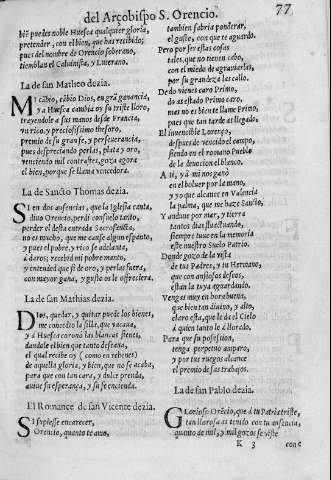 del Arçobispo S. Orencio. 77
bié puedes noble Huesca qualquier gloria,
pretender, con el bien, que has recibido;
pues del nombre de Orencio soberano,
tiemblan el Caluinista, y Luterano.
La de san Matheo dezia.
MI cábio, cábio Dios, en grá ganancia,
y a Huesca cambia oy su triste lloro,
trayendole a sus manos desde Francia,
vn rico, y preciosissimo thesoro,
premio de su gran fe, y perseuerancia,
pues despreciando perlas, plata y oro,
venciendo mil contrastes, goza agora
el bien, porque se llama vencedora.
La de Sancto Thomas dezia.
SI en dos ausencias, que la Iglesia canta,
diuo Orencio, perdi consuelo tanto,
perder el desta entrada Sacrosancta,
no es mucho, que me cause algun espanto,
y pues el pobre, y rico se adelanta,
á daros; recebid mi pobre manto,
y entended que si de oro, y perlas fuera,
con mayor gana, y gusto os le ofreciera.
La de san Mathias dezia.
DIos, quedar, y quitar puede los bienes,
me concedio la silla, que vacaua,
y á Huesca coronó las blancas sienes,
dandole el bien que tanto desseaua,
el qual recibe oy ( como en rehenes)
de aquella gloria, y bien, que no se acaba,
para que con tan cara, y dulce prenda,
auiue su esperança, y su fe encienda.
El Romance de san Vicente dezia.
SI supiesse encarecer,
Orencio, quanto te amo,
tambien sabria ponderar,
el gusto, con que te aguardo.
Pero por ser estas cosas
tales, que no tienen cabo,
con el miedo de agrauiarlas,
por su grandeza les callo.
De do vienes caro Primo,
do as estado Primo caro,
mas no es bien te llame Primo,
pues que tan tarde as llegado.
El inuencible Lorenço,
despues de vencido el campo,
siendo en el romano Pueblo
de la deuocion el blanco.
A ti, y á mi nos rogaró
en el boluer por la mano,
y yo que alcance en Valencia
la palma, que me haze Sancto,
Y anduue por mar, y tierra
tantos dias fluctuando,
siempre tuue en la memoria
este nuestro Suelo Patrio.
Donde gozo de la vista
de tus Padres, y tu Hermano,
que con ansiosos deseos,
estan la tuya aguardando.
Vengas muy en hora buena,
que bien tan diuino, y alto,
claro esta, que le dá el Cielo
á quien tanto le á llorado.
Para que su possession,
tenga perpetuo amparo,
y por tus ruegos alcance
el premio de sus trabajos.
La de san Pablo dezia.
GLorioso Orécio, que á tu Patria triste,
tan llorosa as tenido con tu ausencia,
quanto de mil, y mil gozos se viste
K 3 con e